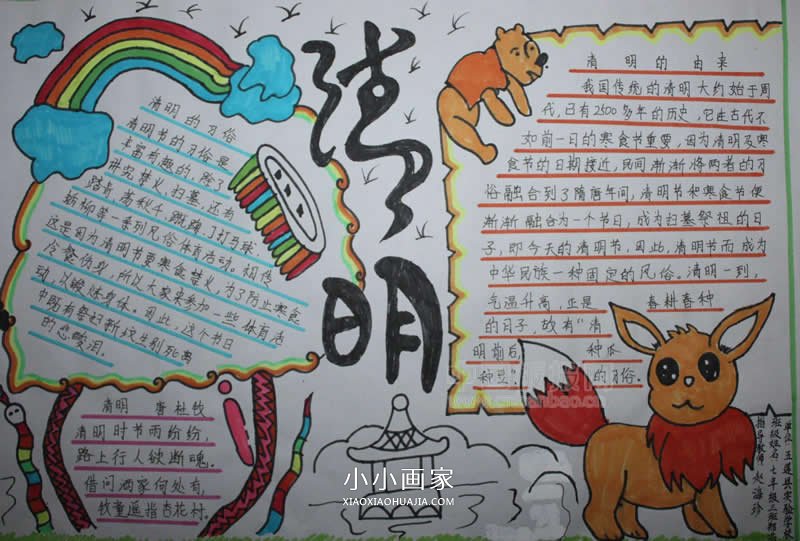 清明
清明的习俗
清明节的习俗是
丰富有趣的,除了
讲究禁火、扫墓,还有
踏青、荡秋千、蹴鞠、打马球、
插柳等一系列风俗体育活动。相传
这是因为清明节要寒食禁火,为了防止寒食
冷餐伤身,所以大家来参加一些体育活
动,以锻炼身体。因此,这个节日
中既有祭扫新坟生别死离
的悲酸泪。
清明的由来
我国传统的清明大约始于周
代,已有2500多年的历史,它在古代不
如前一日的寒食节重要,因为清明及寒
食节的日期接近,民间渐渐将两者的习
俗融合,到了隋唐年间,清明节和寒食节便
渐渐融合为一个节日,成为扫墓祭祖的日
子,即今天的清明节。因此,清明节而成为
中华民族一种固定的风俗。清明一到,
气温升高,正是 春耕春种
的日子,故有“清
明前后, 种瓜
种豆” 的习俗。
清明 唐 杜牧
清明时节雨纷纷,
路上行人欲断魂。
借问酒家何处有,
牧童遥指杏花村。
单位 五莲县实验学校
班级姓名 七年级三班
指导教师 赵海珍
小小画家
XIAOXIAOHUAJIA.COM